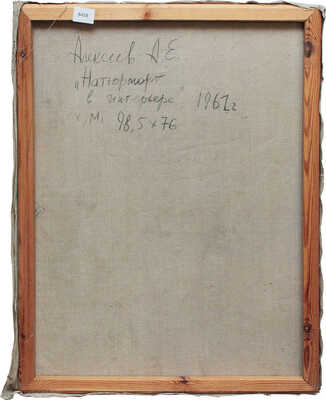 Алексеев А.Е.
„Натюрморт
в интерьере" 1961г
х.,м. 98,5×76